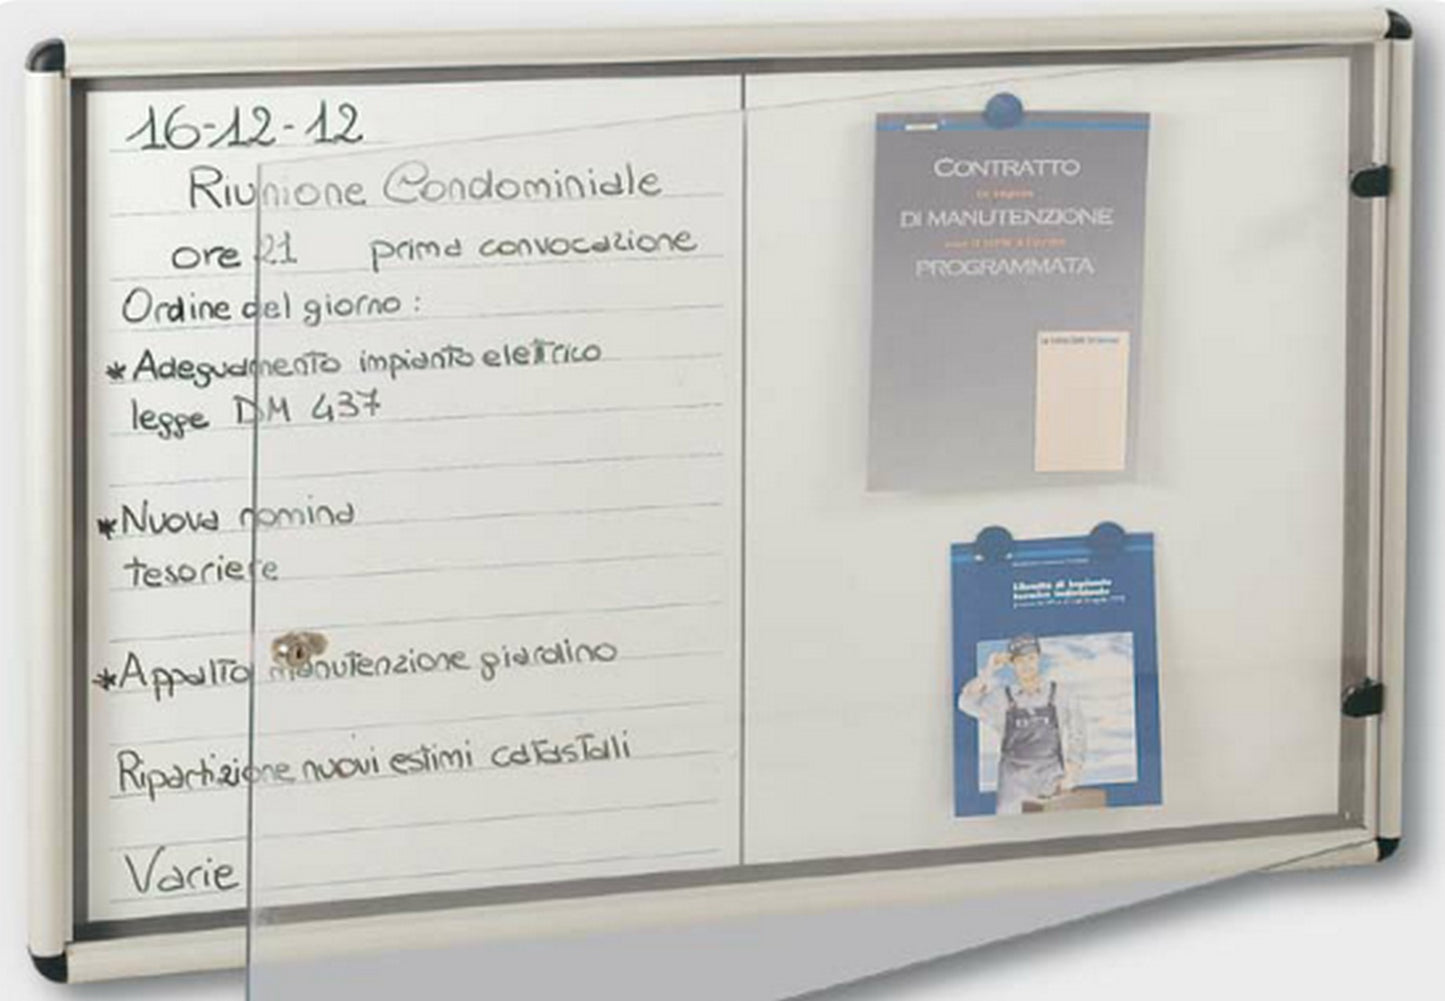 16-12-12
Riunione Condominiale
ore 21 prima convocazione
Ordine del giorno :
*Adeguamento impianto elettrico
legge DM 437
*Nuova nomina
tesoriere
*Appalto manutenzione giardino
Ripartizione nuovi estimi catastali
Varie
CONTRATTO
DI MANUTENZIONE
PROGRAMMATA
Libretto di impianto
termico individuale